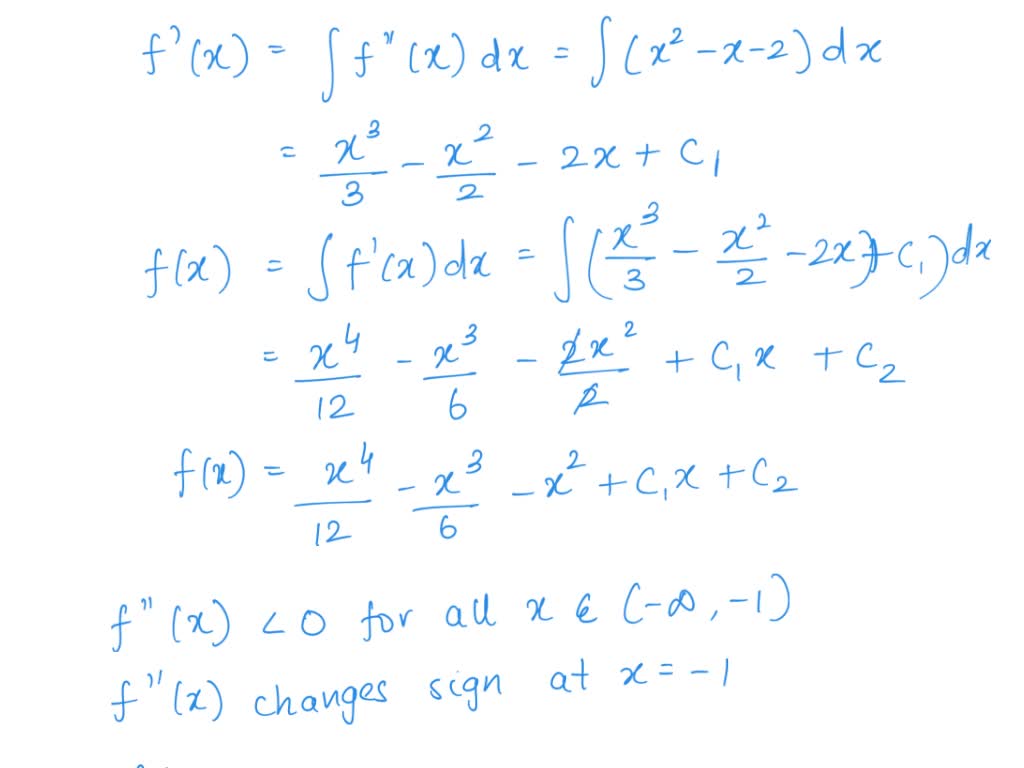 f'(x) = ∫ f"(x) dx = ∫ (x² - x - 2) dx
= x³/3 - x²/2 - 2x + C₁
f(x) = ∫ f'(x) dx = ∫ (x³/3 - x²/2 - 2x + C₁) dx
= x⁴/12 - x³/6 - 2x²/2 + C₁x + C₂
f(x) = x⁴/12 - x³/6 - x² + C₁x + C₂
f"(x) < 0 for all x ∈ (-∞, -1)
f"(x) changes sign at x = -1